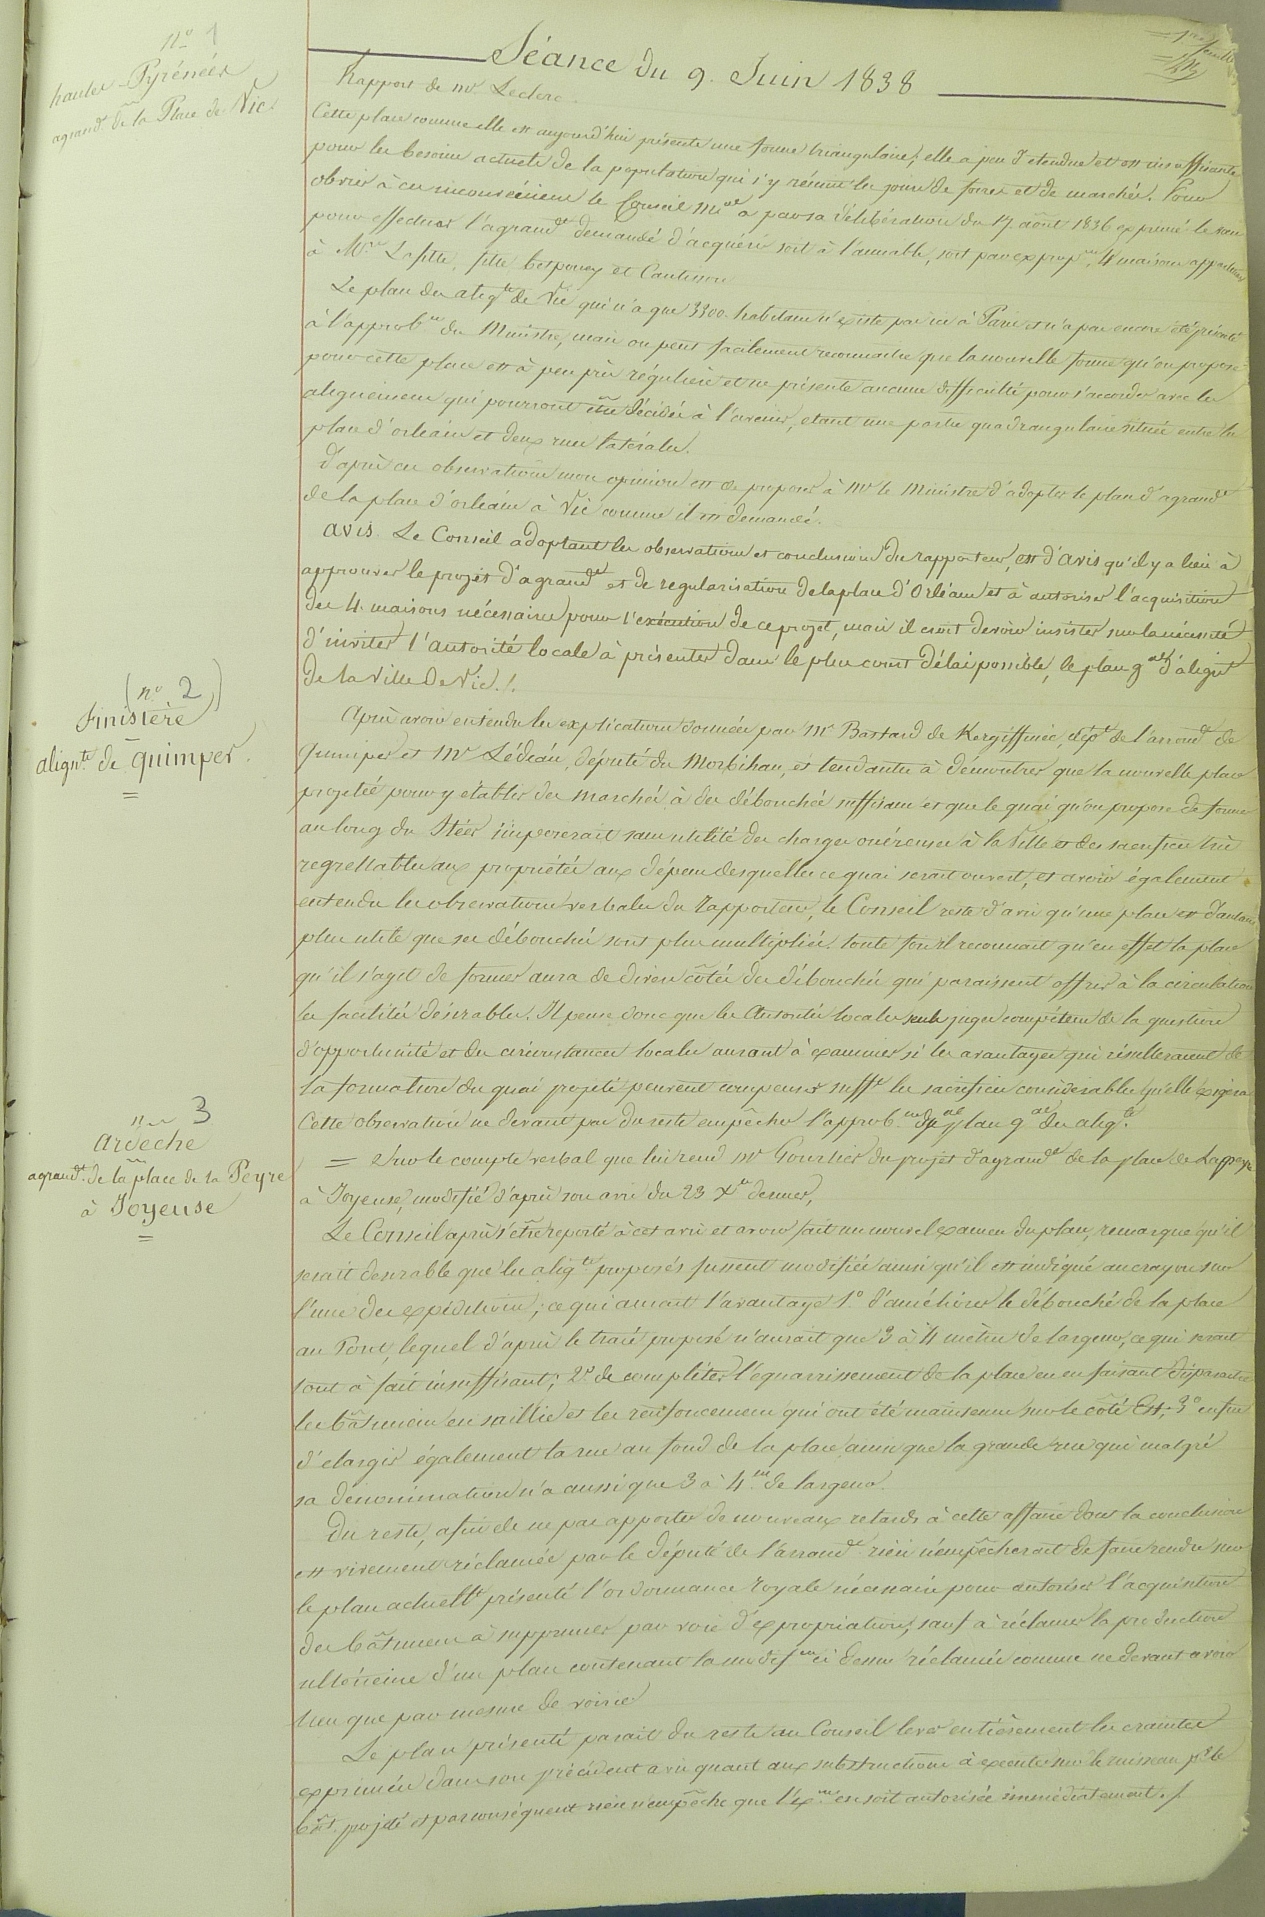 nº 1
hautes-Pyrénées
agrandt de la Place de Vic
Séance du 9. Juin 1838
1re feuille
Rapport de mr Leclerc.
Cette place comme elle est aujourd'hui présente une forme triangulaire; elle a peu d'etendue et est insuffisante
pour les besoins actuels de la population qui s'y réunit les jours de foires et de marchés. Pour
obvier à ces inconvéniens le Conseil mial a par sa délibération du 17 août 1836 exprimé le vœu
pour effectuer l'agrandt demandé d'acquérir soit à l'amiable, soit par exprop.on, 4 maisons appartenant
à Mrs Lafitte, fitte, et Cantinou
Le plan des aligts de Vic qui n'a que 3300 habitans n'existe pas ici à Paris et n'a pas encore été présenté
à l'approb.on du Ministre, mais on peut facilement reconnaitre que la nouvelle forme qu'on propose
pour cette place est à peu près régulière et ne présente aucune difficulté pour s'accorder avec les
alignemens qui pourront être décidés à l'avenir, etant une partie quadrangulaire située entre la
place d'orléans et deux rues latérales.
D'après ces observations mon opinion est de proposer à mr le Ministre d'adopter le plan d'agrandt
de la place d'orléans à Vic comme il est demandé.
avis. Le Conseil adoptant les observations et conclusions du rapporteur, est d'avis qu'il y a lieu à
approuver le projet d'agrandt et de regularisation de la place d'Orléans et à autoriser l'acquisition
des 4 maisons nécessaires pour l'exécution de ce projet, mais il croit devoir insister sur la nécessité
d'inviter l'autorité locale à présenter dans le plus court délai possible, le plan gal d'aligt
de la Ville de Vic ./.
(nº 2)
Finistère
alignts de quimper.
Après avoir entendu les explications données par Mr Bastard de Kergiffinec, dépté de l'arrondt de
Quimper et Mr Lédéan, député du Morbihan, et tendantes à démontrer que la nouvelle place
projetée pour y établir des marchés, à des débouchés suffisans et que le quai qu'on propose de former
au long du Stéer imposerait sans utilité des charges onéreuses à la Ville et des sacrifices très
regrettables aux propriétés aux dépens desquelles ce quai serait ouvert, et avoir également
entendu les observations verbales du rapporteur, le Conseil reste d'avis qu'une place est d'autant
plus utile que ses débouchés sont plus multipliés. toute fois il reconnait qu'en effet la place
qu'il s'agit de former aura de divers côtés des débouchés qui paraissent offrir à la circulation
les facilités désirables. Il pense donc que les Autorités locales seules juges compétens de la question
d'opportunité et des circonstances locales auront à examiner si les avantages qui résulteraient de
la formation du quai projeté peuvent compenser sufft les sacrifices considérables qu'elle exigera
Cette observation ne devant pas du reste empêcher l'approb.on du plan gal des aligts.
nº 3
ardèche
agrandt de la place de la Peyre
à Joyeuse
= Sur le compte verbal que lui rend mr Gourlier du projet d'agrandt de la place de Lapeyre
à Joyeuse, modifié d'après son avis du 23 Xbre dernier,
Le Conseil après s'être reporté à cet avis et avoir fait un nouvel examen du plan, remarque qu'il
serait desirable que les aligts proposés fussent modifiés ainsi qu'il est indiqué au crayon sur
l'une des expéditions; ce qui aurait l'avantage 1º d'améliorer le débouché de la place
au Pont, lequel d'après le tracé proposé n'aurait que 3 à 4 mètres de largeur, ce qui serait
tout à fait insuffisant; 2º de compléter l'équarrissement de la place en en faisant disparaitre
les bâtimens en saillie et les renfoncemens qui ont été maintenus sur le côté Est; 3º enfin
d'elargir également la rue au fond de la place ainsi que la grande rue qui malgré
sa dénomination n'a aussi que 3 à 4m de largeur.
Du reste, afin de ne pas apporter de nouveaux retards à cette affaire dont la conclusion
est vivement réclamée par le député de l'arrondt rien n'empêcherait de faire rendre sur
le plan actuellt présenté l'ordonnance royale nécessaire pour autoriser l'acquisition
des bâtimens à supprimer par voie d'expropriation, sauf à réclamer la production
ultérieure d'un plan contenant la modifon ci dessus réclamée comme ne devant avoir
lieu que par mesure de voirie
Le plan présenté parait du reste au Conseil lever entièrement les craintes
exprimées dans son précédent avis quant aux substructions à exécuter sur le ruisseau pr le
bât. projeté et par conséquent rien n'empêche que l'ex.on en soit autorisée immédiatement ./.